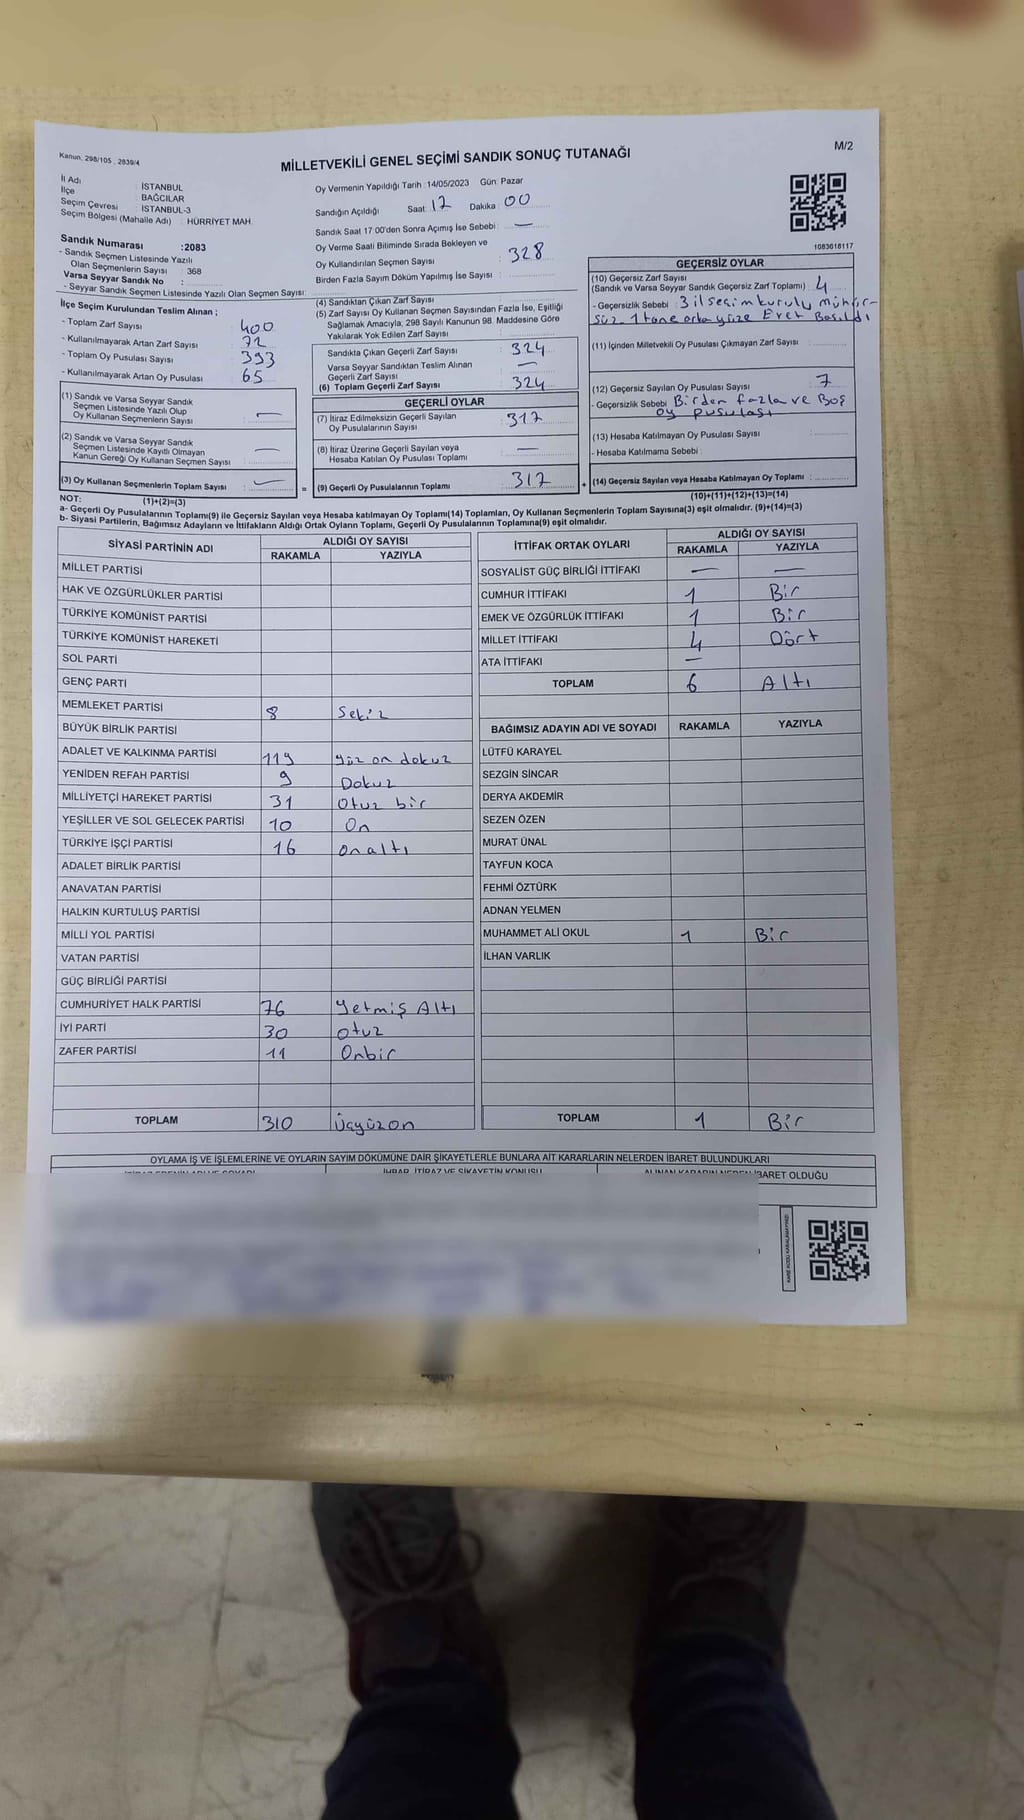 Kanun, 298/105 , 2839/4
MİLLETVEKİLİ GENEL SEÇİMİ SANDIK SONUÇ TUTANAĞI
M/2
İl Adı : İSTANBUL
İlçe : BAĞCILAR
Seçim Çevresi : İSTANBUL-3
Seçim Bölgesi (Mahalle Adı) : HÜRRİYET MAH.
Sandık Numarası :2083
- Sandık Seçmen Listesinde Yazılı
Olan Seçmenlerin Sayısı : 368
Varsa Seyyar Sandık No :
- Seyyar Sandık Seçmen Listesinde Yazılı Olan Seçmen Sayısı:
İlçe Seçim Kurulundan Teslim Alınan ;
- Toplam Zarf Sayısı : 400
- Kullanılmayarak Artan Zarf Sayısı : 72
- Toplam Oy Pusulası Sayısı : 393
- Kullanılmayarak Artan Oy Pusulası : 65
(1) Sandık ve Varsa Seyyar Sandık
Seçmen Listesinde Yazılı Olup
Oy Kullanan Seçmenlerin Sayısı : —
(2) Sandık ve Varsa Seyyar Sandık
Seçmen Listesinde Kayıtlı Olmayan
Kanun Gereği Oy Kullanan Seçmen Sayısı : —
(3) Oy Kullanan Seçmenlerin Toplam Sayısı : —
(1)+(2)=(3)
Oy Vermenin Yapıldığı Tarih :14/05/2023 Gün: Pazar
Sandığın Açıldığı Saat: 17 Dakika: 00
Sandık Saat 17:00'den Sonra Açımış İse Sebebi : —
Oy Verme Saati Bitiminde Sırada Bekleyen ve
Oy Kullandırılan Seçmen Sayısı : 328
Birden Fazla Sayım Döküm Yapılmış İse Sayısı :
(4) Sandıktan Çıkan Zarf Sayısı :
(5) Zarf Sayısı Oy Kullanan Seçmen Sayısından Fazla İse, Eşitliği
Sağlamak Amacıyla, 298 Sayılı Kanunun 98. Maddesine Göre
Yakılarak Yok Edilen Zarf Sayısı :
Sandıkta Çıkan Geçerli Zarf Sayısı : 324
Varsa Seyyar Sandıktan Teslim Alınan
Geçerli Zarf Sayısı : —
(6) Toplam Geçerli Zarf Sayısı : 324
GEÇERLİ OYLAR
(7) İtiraz Edilmeksizin Geçerli Sayılan
Oy Pusulalarının Sayısı : 317
(8) İtiraz Üzerine Geçerli Sayılan veya
Hesaba Katılan Oy Pusulası Toplamı : —
= (9) Geçerli Oy Pusulalarının Toplamı : 317 +
1083618117
GEÇERSİZ OYLAR
(10) Geçersiz Zarf Sayısı
(Sandık ve Varsa Seyyar Sandık Geçersiz Zarf Toplamı) : 4
- Geçersizlik Sebebi : 3 ilseçimkurulu mühür-
süz 1 tane orta yüze Evet Basıldı
(11) İçinden Milletvekili Oy Pusulası Çıkmayan Zarf Sayısı :
(12) Geçersiz Sayılan Oy Pusulası Sayısı : 7
- Geçersizlik Sebebi : Birden fazla ve Boş
oy pusulası
(13) Hesaba Katılmayan Oy Pusulası Sayısı :
- Hesaba Katılmama Sebebi :
(14) Geçersiz Sayılan veya Hesaba Katılmayan Oy Toplamı :
(10)+(11)+(12)+(13)=(14)
NOT:
a- Geçerli Oy Pusulalarının Toplamı(9) ile Geçersiz Sayılan veya Hesaba katılmayan Oy Toplamı(14) Toplamları, Oy Kullanan Seçmenlerin Toplam Sayısına(3) eşit olmalıdır. (9)+(14)=(3)
b- Siyasi Partilerin, Bağımsız Adayların ve İttifakların Aldığı Ortak Oyların Toplamı, Geçerli Oy Pusulalarının Toplamına(9) eşit olmalıdır.
SİYASİ PARTİNİN ADI ALDIĞI OY SAYISI
RAKAMLA YAZIYLA
MİLLET PARTİSİ
HAK VE ÖZGÜRLÜKLER PARTİSİ
TÜRKİYE KOMÜNİST PARTİSİ
TÜRKİYE KOMÜNİST HAREKETİ
SOL PARTİ
GENÇ PARTİ
MEMLEKET PARTİSİ 8 Sekiz
BÜYÜK BİRLİK PARTİSİ
ADALET VE KALKINMA PARTİSİ 119 yüz on dokuz
YENİDEN REFAH PARTİSİ 9 Dokuz
MİLLİYETÇİ HAREKET PARTİSİ 31 Otuz bir
YEŞİLLER VE SOL GELECEK PARTİSİ 10 On
TÜRKİYE İŞÇİ PARTİSİ 16 onaltı
ADALET BİRLİK PARTİSİ
ANAVATAN PARTİSİ
HALKIN KURTULUŞ PARTİSİ
MİLLİ YOL PARTİSİ
VATAN PARTİSİ
GÜÇ BİRLİĞİ PARTİSİ
CUMHURİYET HALK PARTİSİ 76 Yetmiş Altı
İYİ PARTİ 30 otuz
ZAFER PARTİSİ 11 Onbir
TOPLAM 310 Üçyüzon
İTTİFAK ORTAK OYLARI ALDIĞI OY SAYISI
RAKAMLA YAZIYLA
SOSYALİST GÜÇ BİRLİĞİ İTTİFAKI — —
CUMHUR İTTİFAKI 1 Bir
EMEK VE ÖZGÜRLÜK İTTİFAKI 1 Bir
MİLLET İTTİFAKI 4 Dört
ATA İTTİFAKI —
TOPLAM 6 Altı
BAĞIMSIZ ADAYIN ADI VE SOYADI RAKAMLA YAZIYLA
LÜTFÜ KARAYEL
SEZGİN SİNCAR
DERYA AKDEMİR
SEZEN ÖZEN
MURAT ÜNAL
TAYFUN KOCA
FEHMİ ÖZTÜRK
ADNAN YELMEN
MUHAMMET ALİ OKUL 1 Bir
İLHAN VARLIK
TOPLAM 1 Bir
OYLAMA İŞ VE İŞLEMLERİNE VE OYLARIN SAYIM DÖKÜMÜNE DAİR ŞİKAYETLERLE BUNLARA AİT KARARLARIN NELERDEN İBARET BULUNDUKLARI
İHBAR, İTİRAZ VE ŞİKAYETİN KONUSU ALINAN KARARIN NEDEN İBARET OLDUĞU